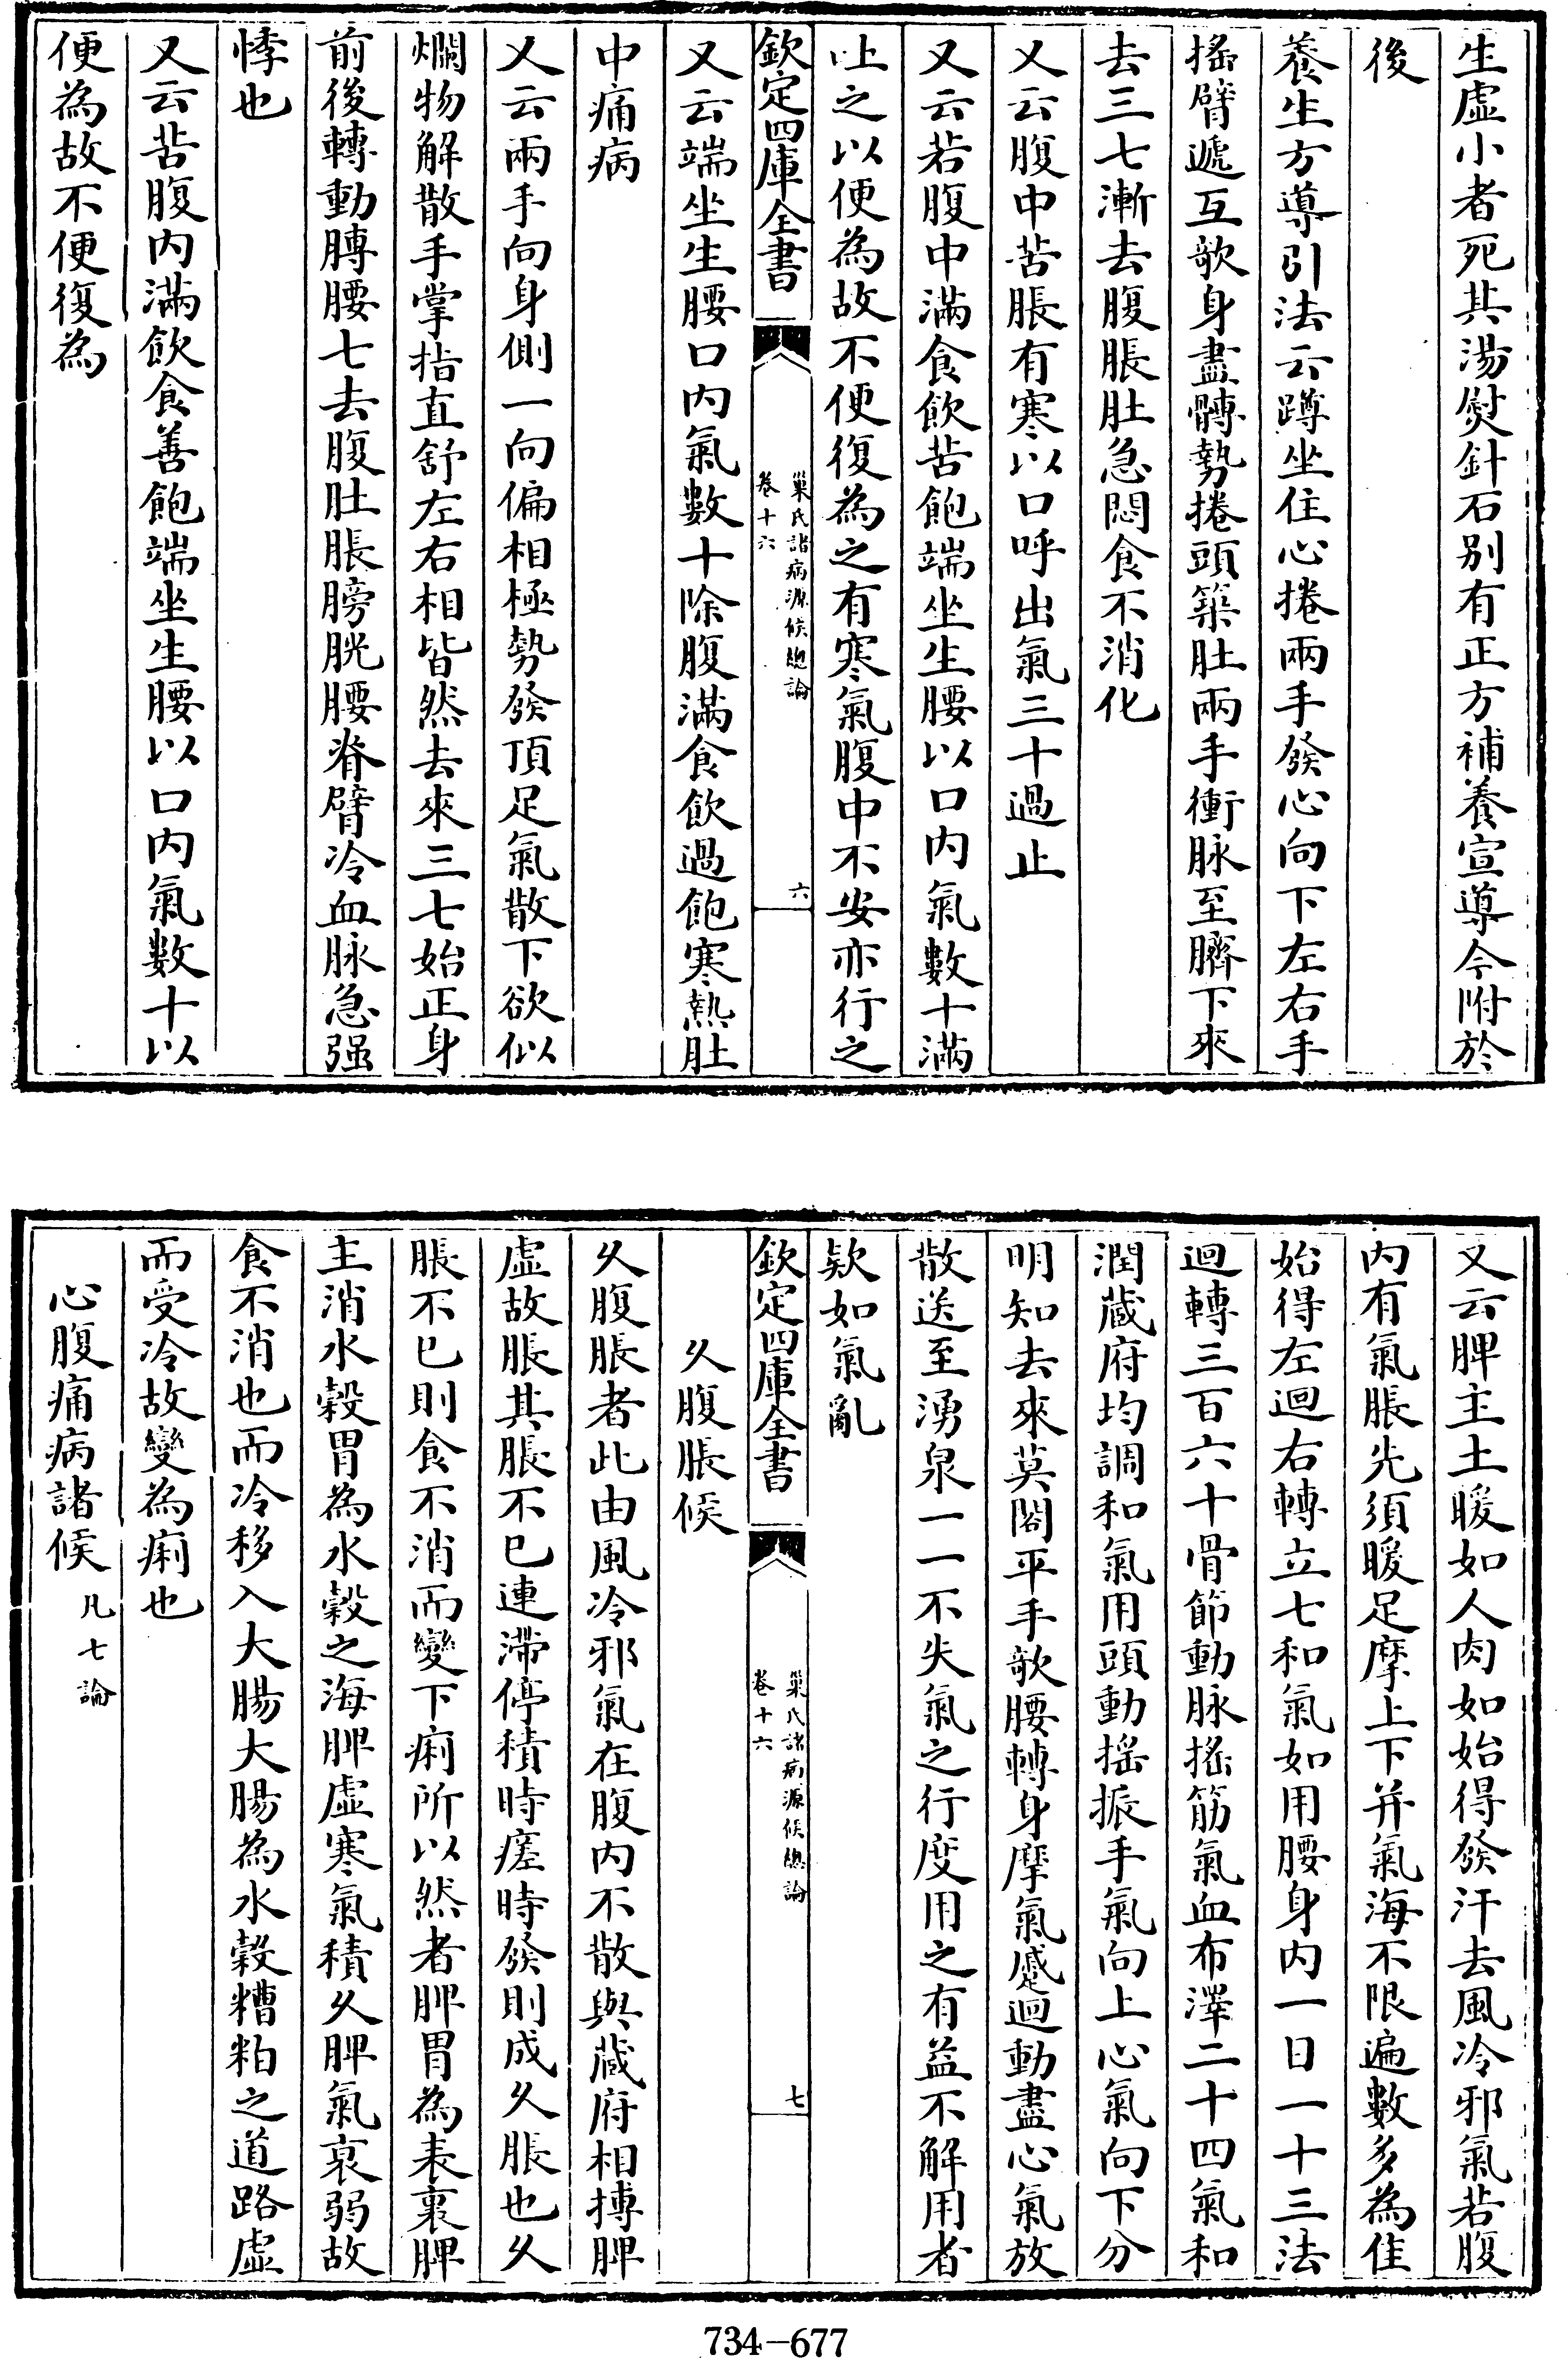 生虚小者死其湯熨針石别有正方補養宣導今附於
後
養生方導引法云蹲坐住心捲兩手發心向下左右手
摇臂遞互欹身盡髆勢捲頭築肚兩手衝脉至臍下來
去三七漸去腹脹肚急悶食不消化
又云腹中苦脹有寒以口呼出氣三十過止
又云若腹中滿食飲苦飽端坐生腰以口内氣數十滿
吐之以便為故不便復為之有寒氣腹中不安亦行之
欽定四庫全書
巢氏諸病源候總論
卷十六
六
又云端坐生腰口内氣數十除腹滿食飲過飽寒熱肚
中痛病
又云兩手向身側一向偏相極勢發頂足氣散下欲似
爛物解散手掌指直舒左右相皆然去來三七始正身
前後轉動膊腰七去腹肚脹膀胱腰脊臂冷血脉急强
悸也
又云苦腹内滿飲食善飽端坐生腰以口内氣數十以
便為故不便復為
又云脾主土暖如人肉如始得發汗去風冷邪氣若腹
内有氣脹先須暖足摩上下并氣海不限遍數多為佳
始得左迴右轉立七和氣如用腰身内一日一十三法
迴轉三百六十骨節動脉摇筋氣血布澤二十四氣和
潤藏府均調和氣用頭動摇振手氣向上心氣向下分
明知去來莫閤平手欹腰轉身摩氣蹙迴動盡心氣放
散送至湧泉一一不失氣之行度用之有益不解用者
欵如氣亂
欽定四庫全書
巢氏諸病源候總論
卷十六
七
乆腹脹候
乆腹脹者此由風冷邪氣在腹内不散與藏府相搏脾
虚故脹其脹不已連滯停積時瘥時發則成乆脹也乆
脹不已則食不消而變下痢所以然者脾胃為表裏脾
主消水穀胃為水穀之海脾虚寒氣積乆脾氣衰弱故
食不消也而冷移入大腸大腸為水穀糟粕之道路虚
而受冷故變為痢也
心腹痛病諸候凡七論
734-677